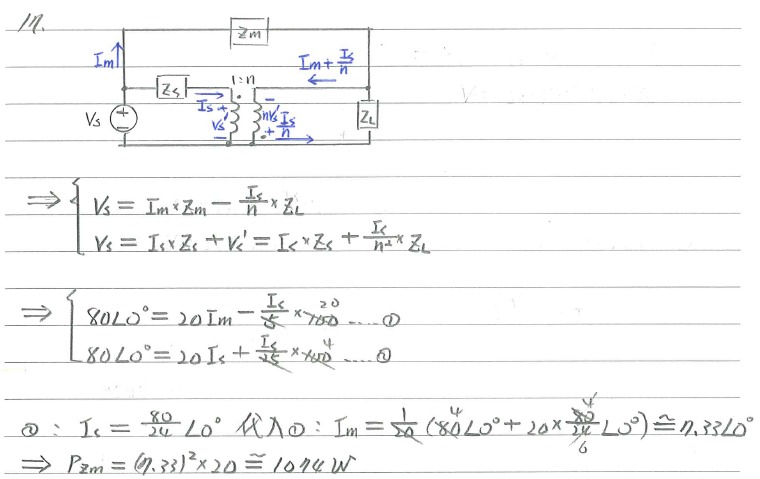 17.
Zm
Im
Im + Is/n
Zs
1:n
Is
Vs
+
−
+
Vs'
−
−
nVs'
+
Is/n
ZL
⇒ { Vs = Im × Zm − Is/n × ZL
Vs = Is × Zs + Vs' = Is × Zs + Is/n² × ZL
⇒ { 80∠0° = 20 Im − Is/5 × 100 20 ..... ①
80∠0° = 20 Is + Is/25 × 100 4 ..... ②
② : Is = 80/24 ∠0° 代入① : Im = 1/20 (80 4∠0° + 20 × 80 4/24 6 ∠0°) ≅ 7.33∠0°
⇒ Pzm = (7.33)² × 20 ≅ 1074 W